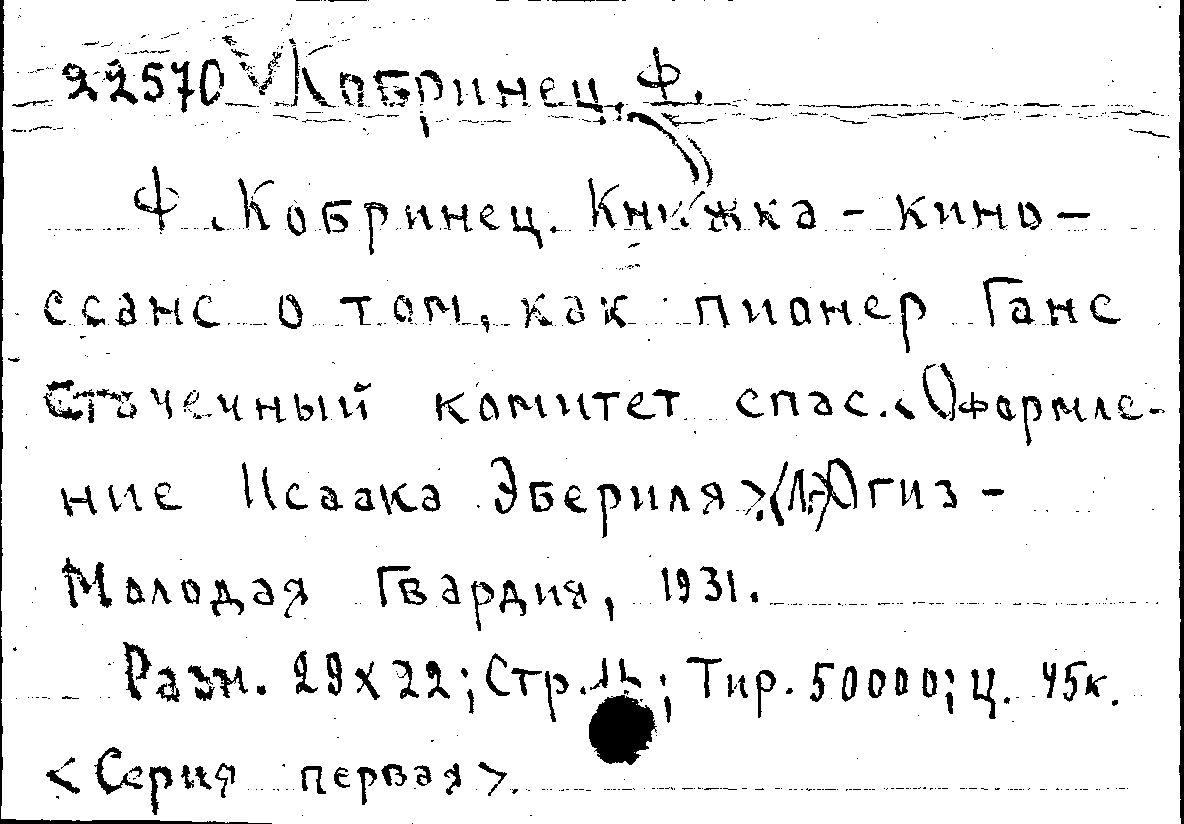 22570 Кобринец, Ф.
Ф. Кобринец. Книжка-кино-
сеанс о том, как пионер Ганс
Стачечный комитет спас. <Оформле-
ние Исаака Эбериля>. (Л.) Огиз-
Молодая Гвардия, 1931.
Разм. 29х22; Стр. 12; Тир. 50000; ц. 45к.
<Серия первая>.